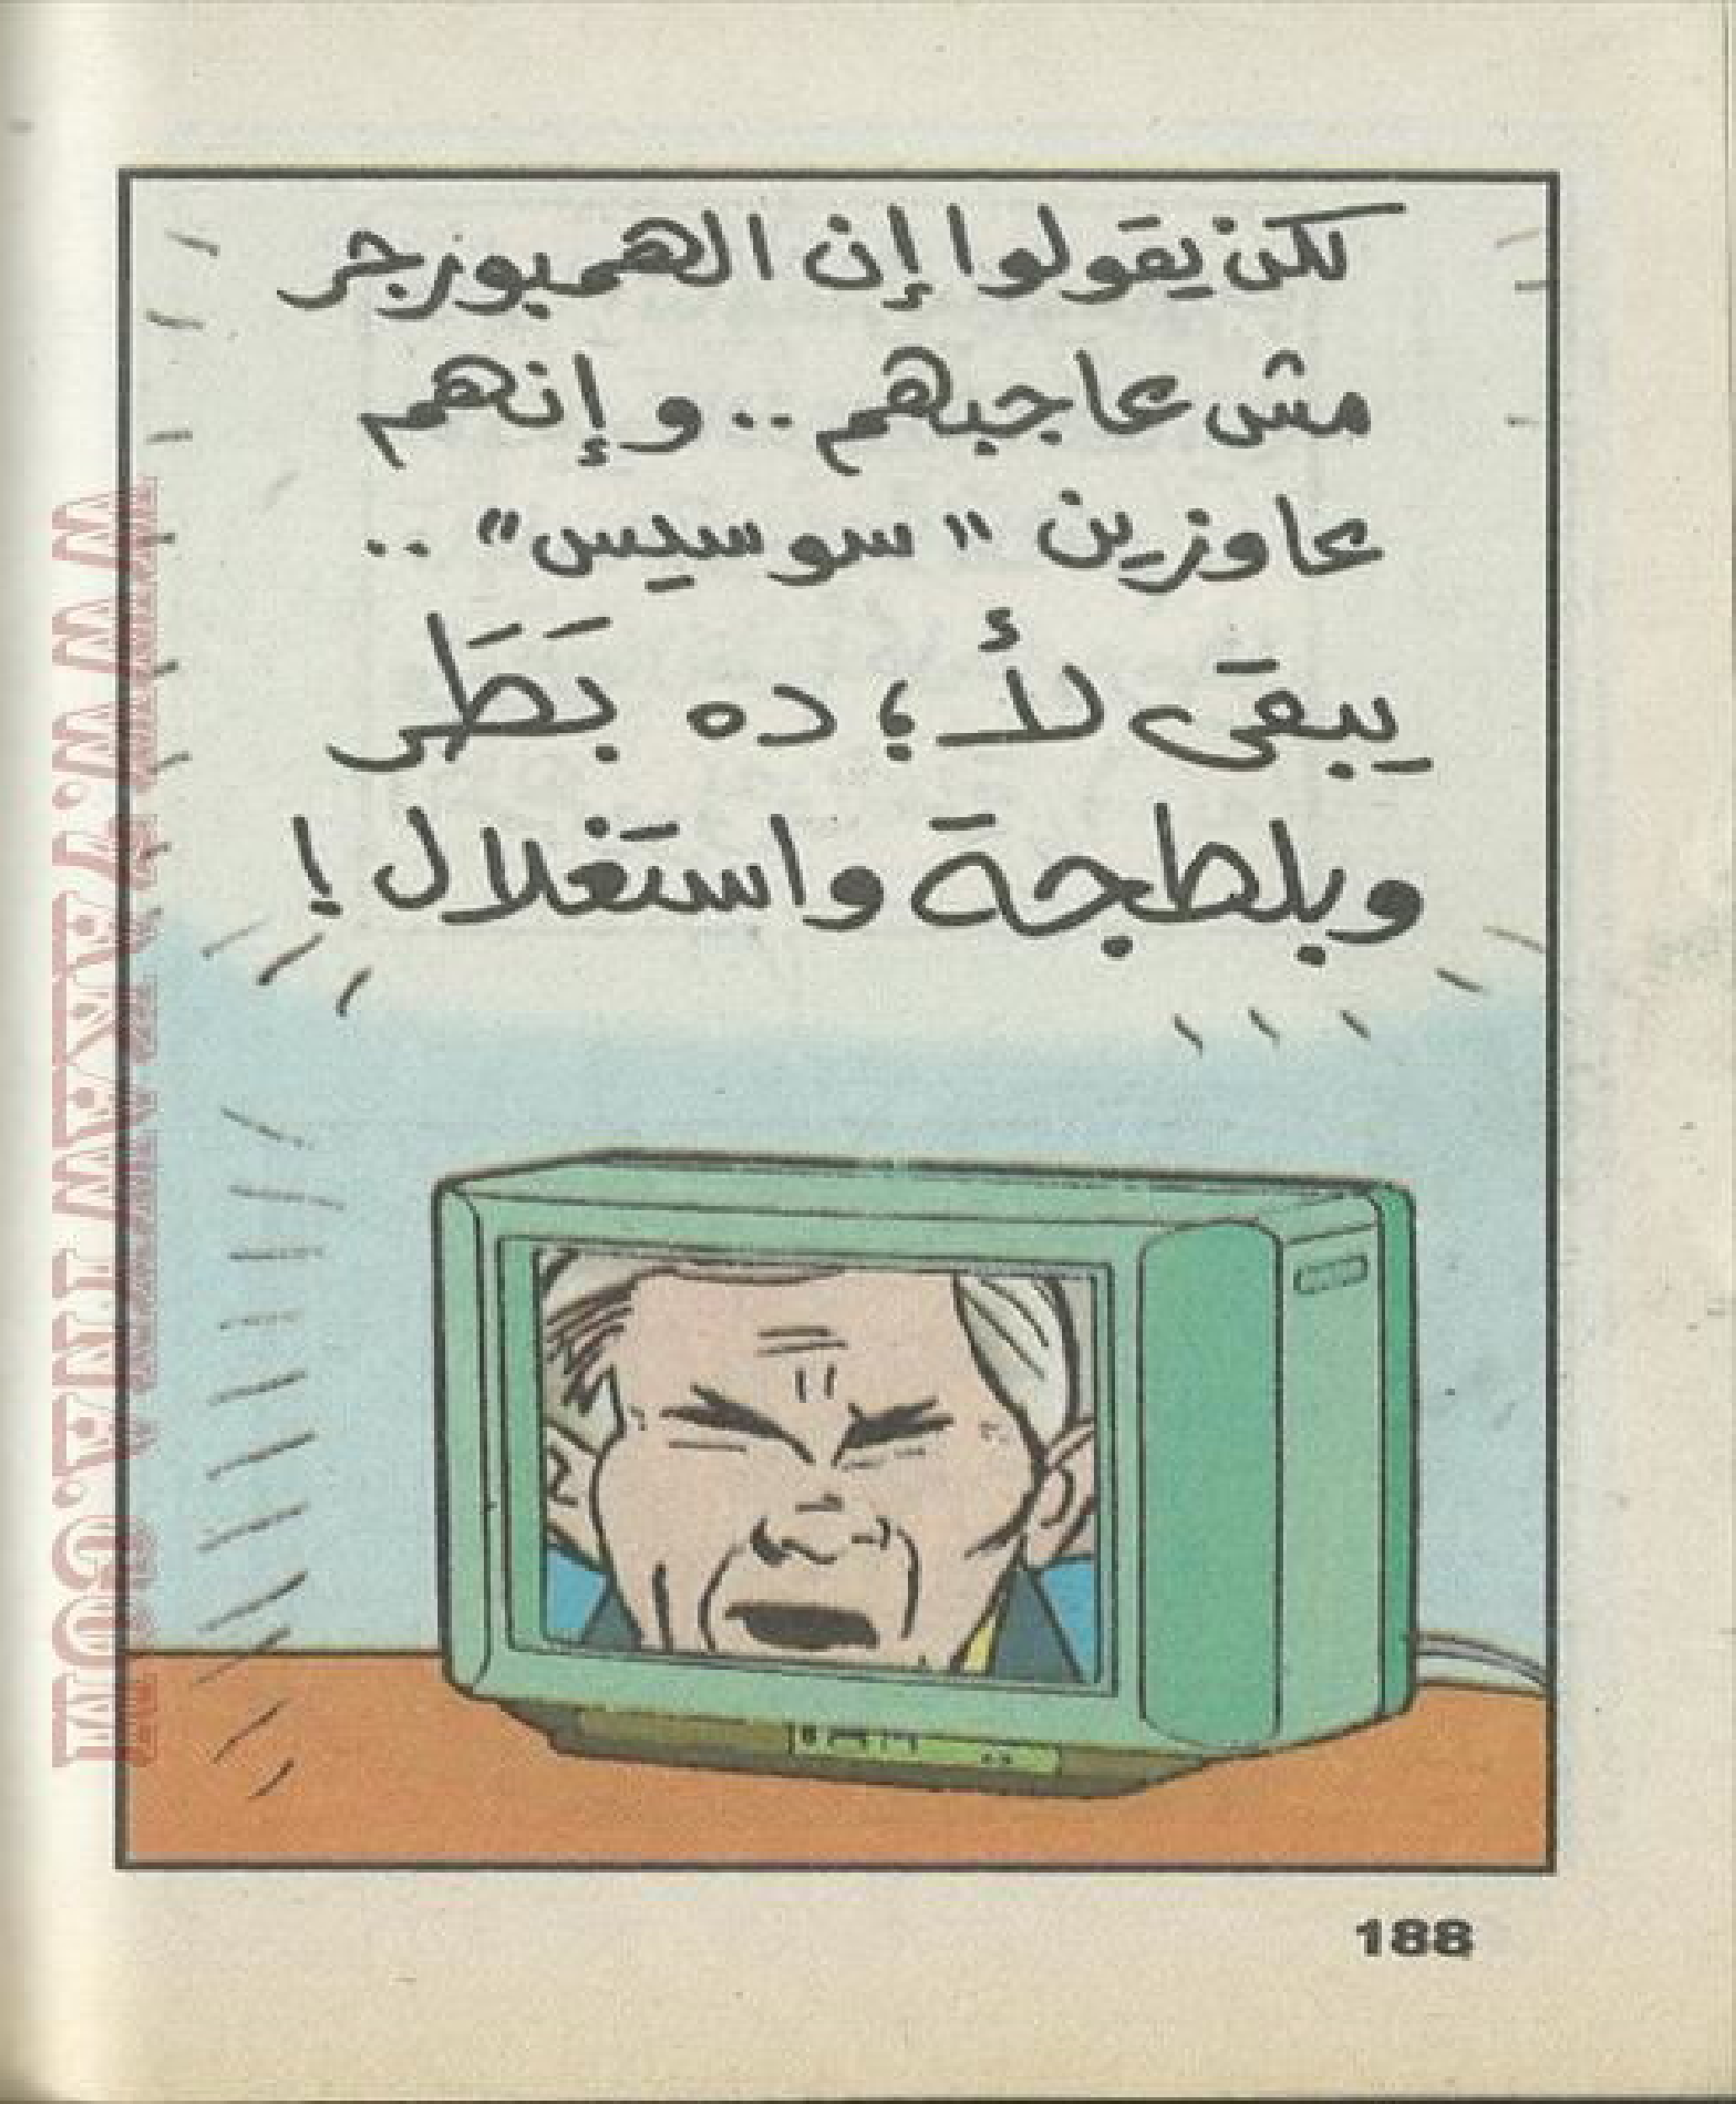 لكن يقولوا إن الهمبورجر
مش عاجبهم .. وإنهم
عاوزين "سوسيس" ..
يبقى لأ؛ ده بَطَر
وبلطجة واستغلال!
188